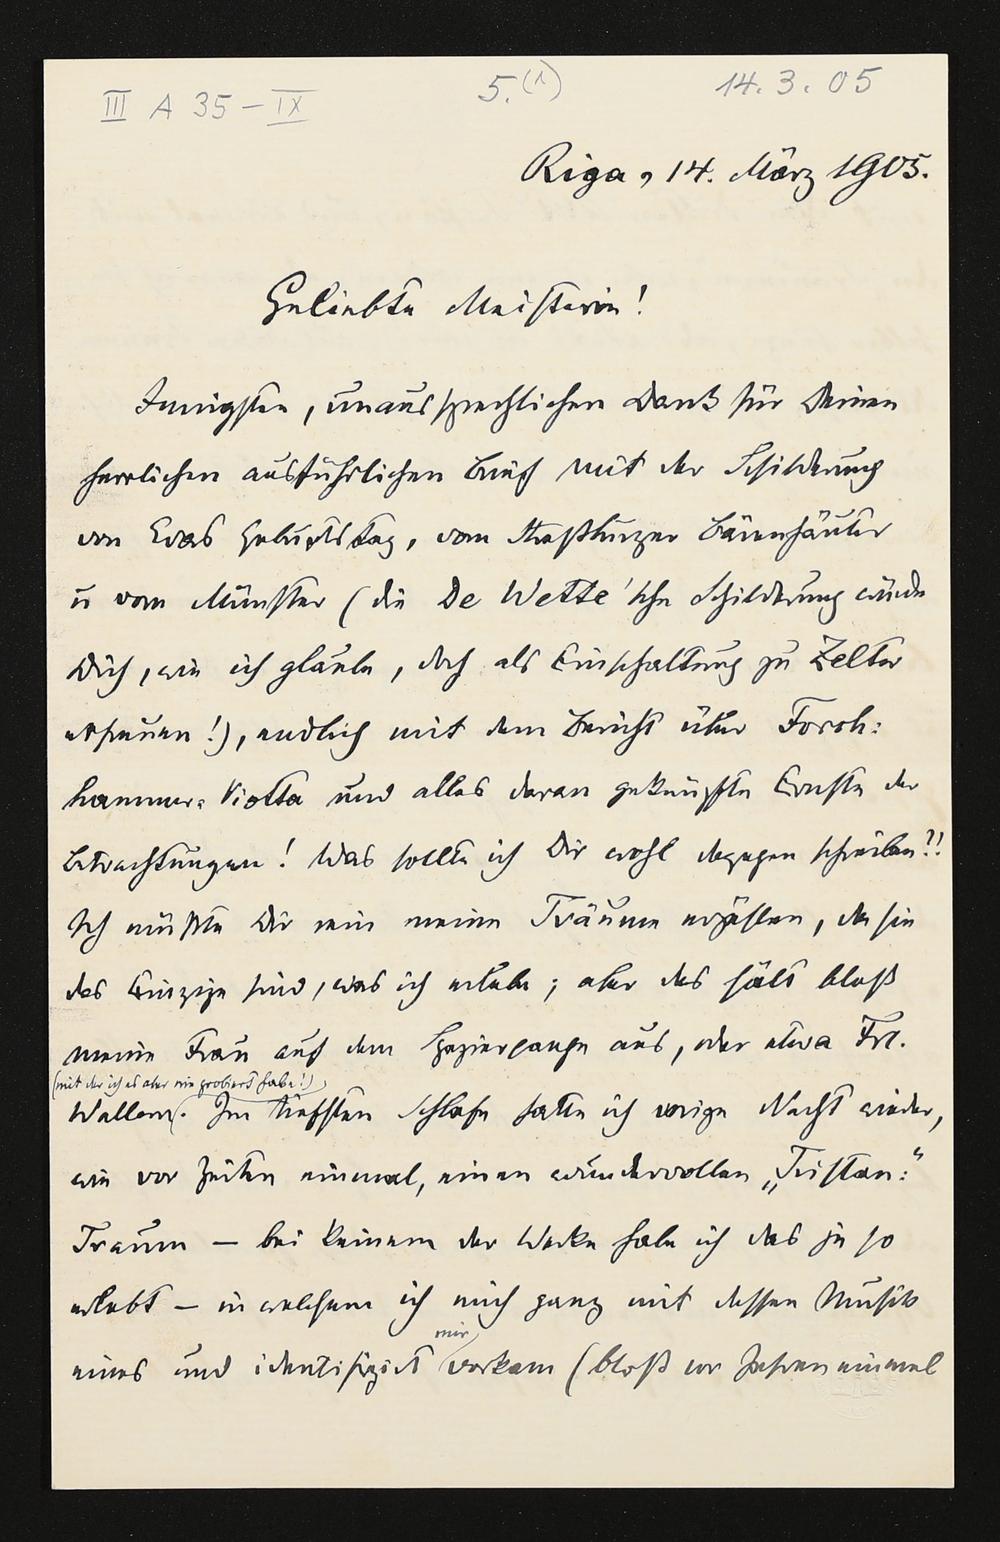 III A 35 – IX
5. (1)
14. 3. 05
Riga, 14. März 1905.
Geliebte Meisterin!
Innigsten, unaussprechlichen Dank für Deinen
herrlichen ausführlichen Brief mit der Schilderung
von Evas Geburtstag, vom Bärenhäuter
u vom Münster (die De Wette'sche Schilderung würde
Dich, wie ich glaube, doch als Einschaltung zu Zelter
erfreuen!), endlich mit dem Bericht über Forch:
hammer=Viotta und alles daran geknüpfte Ernste der
Betrachtungen! Was sollte ich Dir wohl dagegen schreiben?!
Ich müßte Dir rein meine Träume erzählen, da sie
das Einzige sind, was ich erlebe; aber das hält bloß
meine Frau auf dem Spaziergange aus, oder etwa Frl.
(mit der ich es aber nie probiert habe!)
Wallem. Im tiefsten Schlafe hatte ich vorige Nacht wieder,
wie vor Zeiten einmal, einen wundervollen „Tristan:"
Traum — bei keinem der Werke habe ich das je so
erlebt — in welchem ich mich ganz mit dessen Musik
mir
eines und identifiziert vorkam (bloß vor Jahren einmal